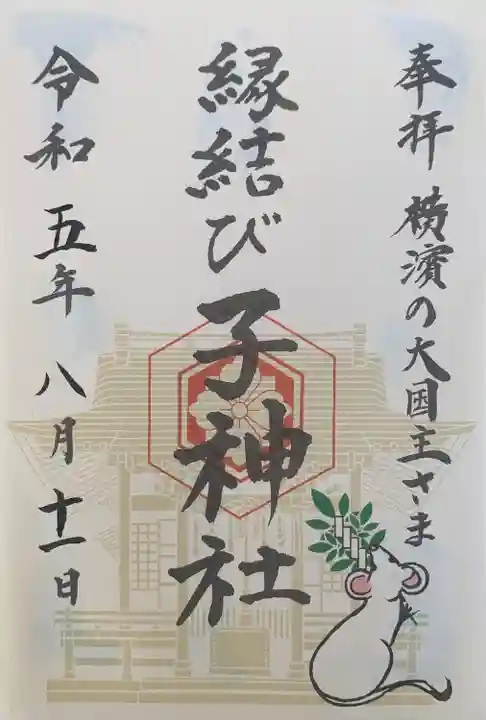 奉拝 横濱の大国主さま
縁結び 子神社
令和五年八月十一日